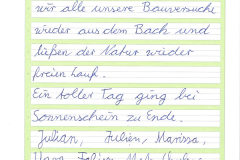 wir alle unsere Bauversuche
wieder aus dem Bach und
ließen der Natur wieder
freien Lauf.
Ein toller Tag ging bei
Sonnenschein zu Ende.
Julian, Julien, Marissa,